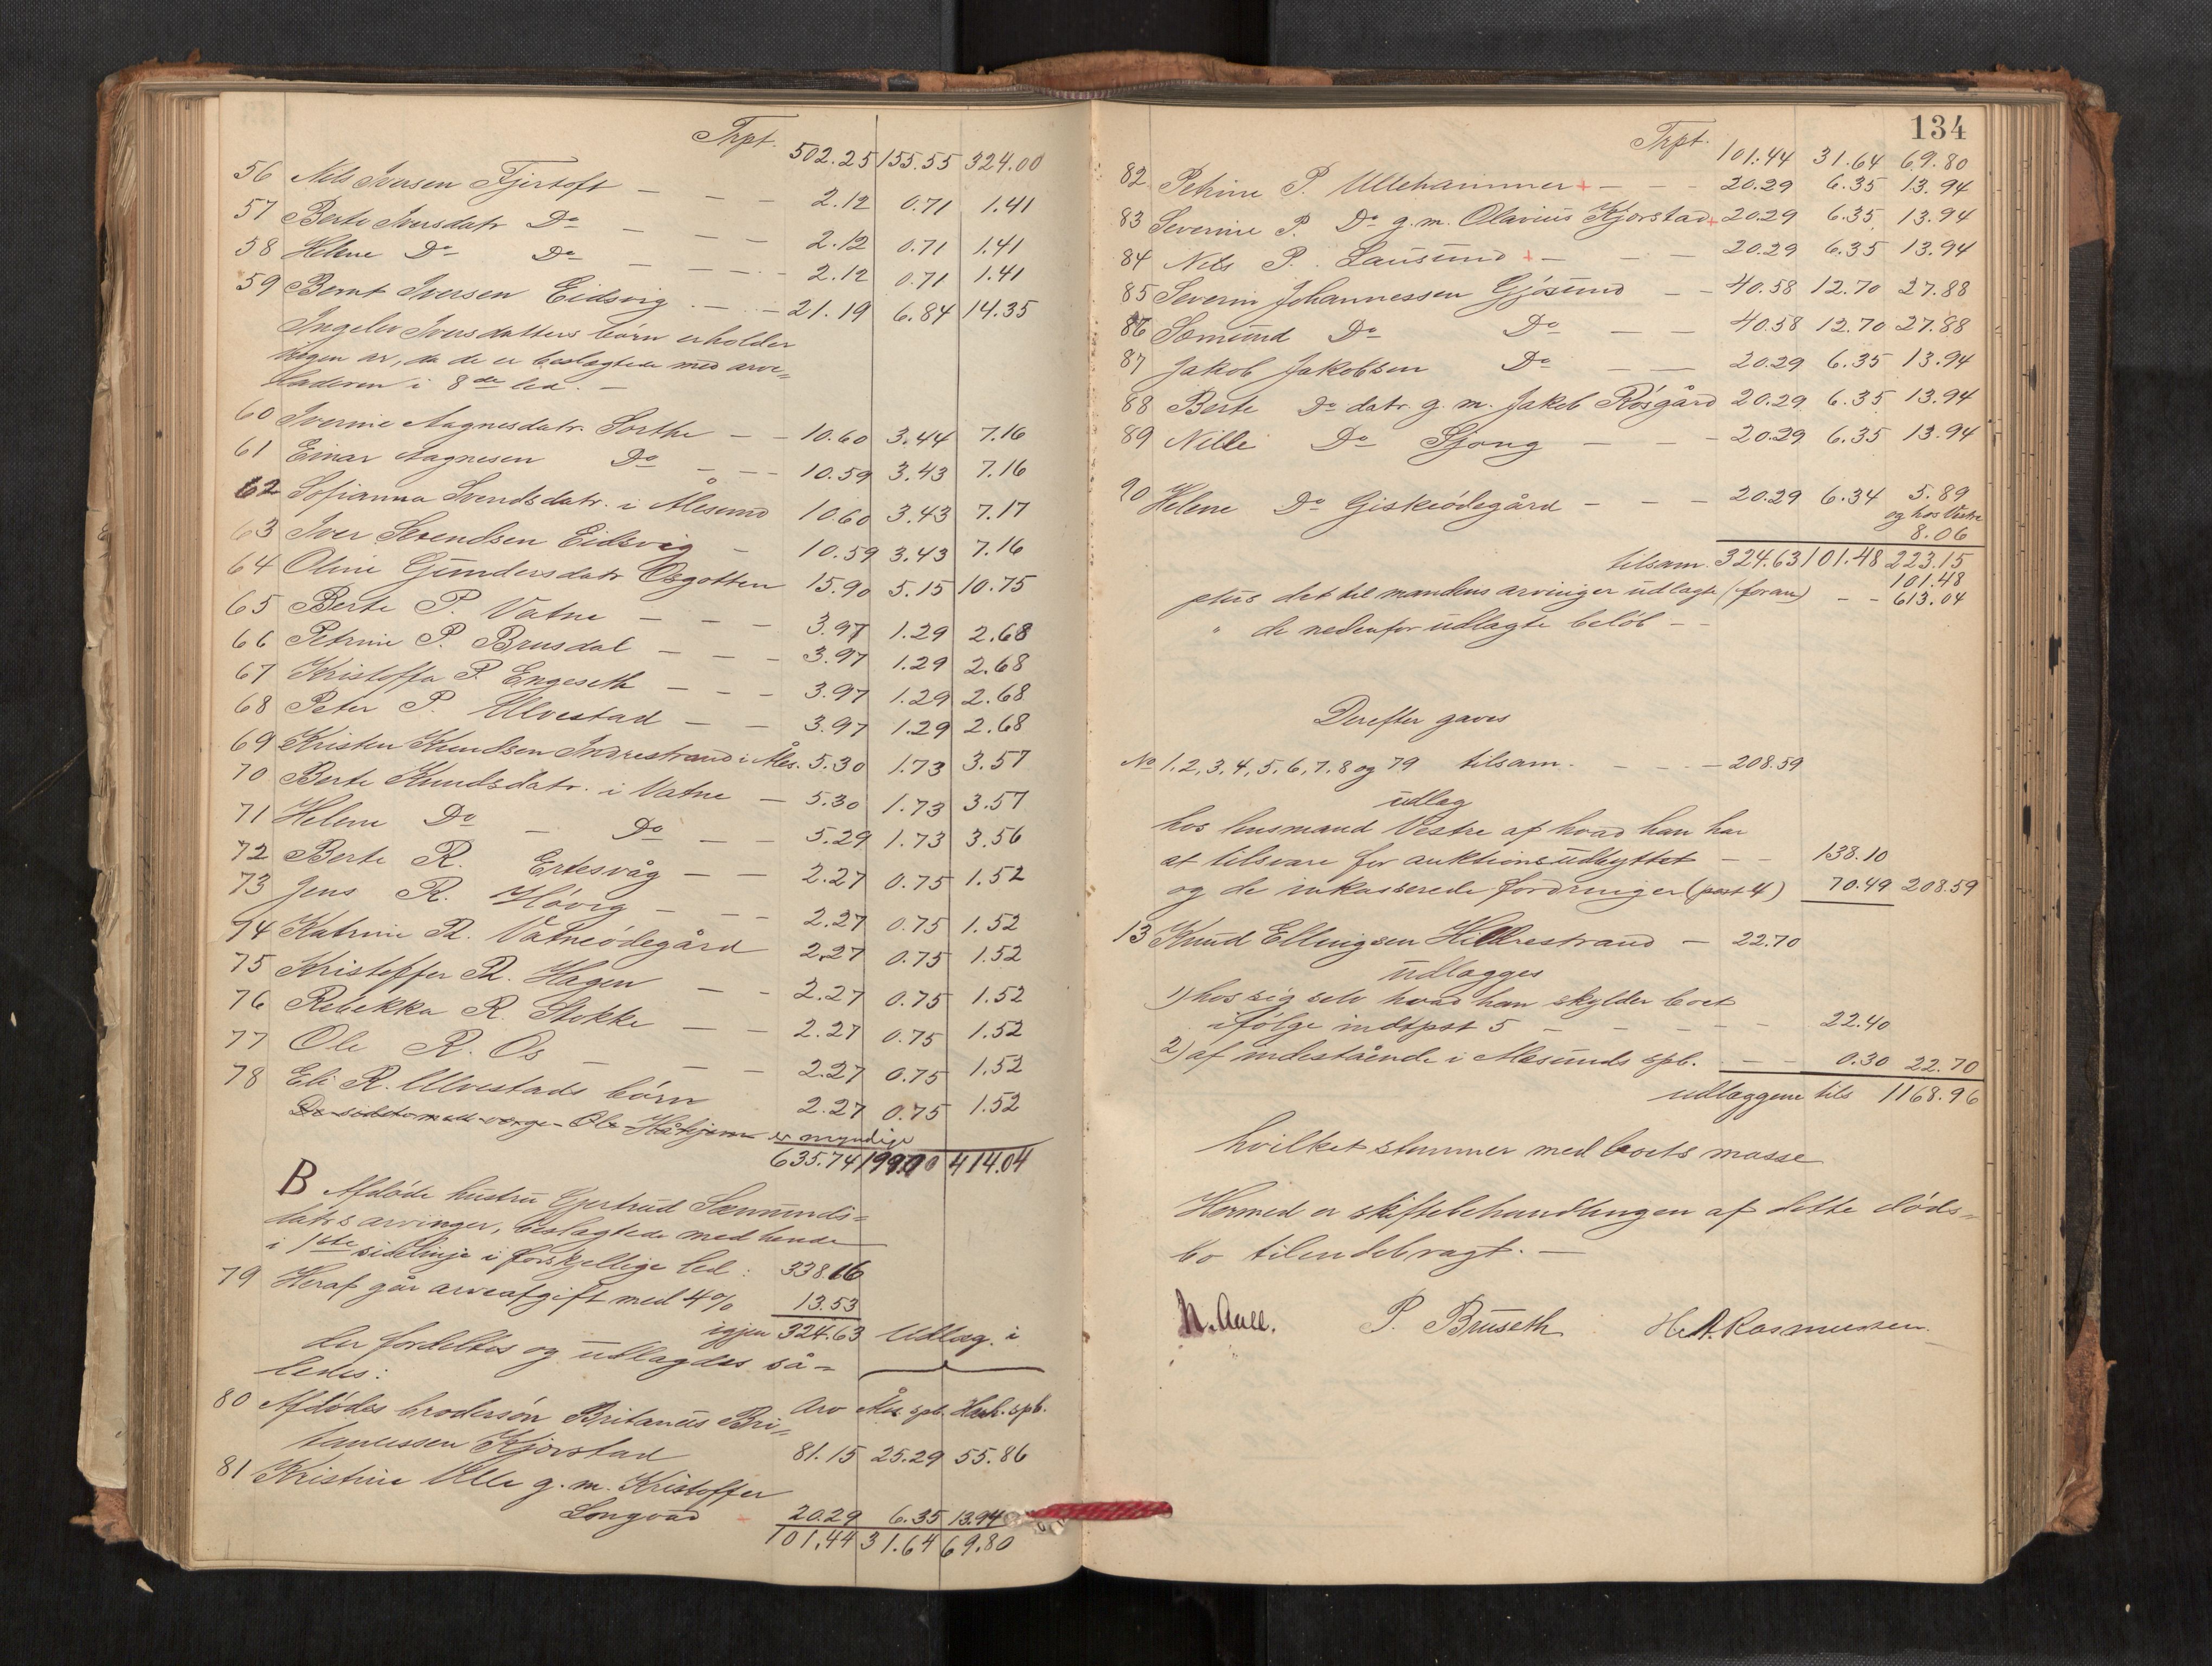 Trpt. 502.25 155.55 324.00
56 Nels Iversen Fjertoft — — — 2.12 0.71 1.41
57 Berte Iversdatr Do — — — 2.12 0.71 1.41
58 Helene Do Do — — — 2.12 0.71 1.41
59 Bernt Iversen Eidsvig — — 21.19 6.84 14.35
Ingelev Iversdatters børn erholder
ingen arv, da de er beslægtede med arve-
laderen i 8de led. —
60 Iverine Aagnesdatr. Sorthe — — 10.60 3.44 7.16
61 Einar Aagnesen Do — — — 10.59 3.43 7.16
62 Sofianna Svendsdatr. i Ålesund 10.60 3.43 7.17
63 Iver Svendsen Eidsvig — 10.59 3.43 7.16
64 Oline Gundersdatr Osgotten 15.90 5.15 10.75
65 Berte P. Vatne — — — 3.97 1.29 2.68
66 Petrine P. Brusdal — — — 3.97 1.29 2.68
67 Kristoffa P. Engeseth — — — 3.97 1.29 2.68
68 Peter P. Ulvestad — — 3.97 1.29 2.68
69 Kristen Knudsen Indrestrand i Åles. 5.30 1.73 3.57
70 Berte Knudsdatr. i Vatne — 5.30 1.73 3.57
71 Helene Do — Do — — 5.29 1.73 3.56
72 Berte R. Ertesvåg — — 2.27 0.75 1.52
73 Jens R. Håvig — — — 2.27 0.75 1.52
74 Katrine R. Vatneødegård 2.27 0.75 1.52
75 Kristoffer R. Hagen — — 2.27 0.75 1.52
76 Rebekka R. Stokke — — 2.27 0.75 1.52
77 Ole R. Os — — — 2.27 0.75 1.52
78 Eli R. Ulvestads børn 2.27 0.75 1.52
De sidste med verge Ole Håhjem er myndige
635.74 199.00 414.04
B Afdøde hustru Gjertrud Sæmunds-
datrs arvinger, beslægtede med hende
i 1ste sidelinje i forskjellige led:
79 338.16
Heraf går arveafgift med 4% 13.53
igjen 324.63 Udlæg i
der fordeltes og udlagdes så-
ledes:
Arv Åles. spb. Harh. spb.
80 Afdødes brodersøn Britanus Bri-
tanussen Kjørstad 81.15 25.29 55.86
81 Kristine Ulle g. m. Kristoffer
Longvad + 20.29 6.35 13.94
101.44 31.64 69.80
134
Trpt. 101.44 31.64 69.80
82 Petrine P. Ullehammer + — — 20.29 6.35 13.94
83 Severine P. Do g. m. Olavius Kjørstad + 20.29 6.35 13.94
84 Nils P. Lausund + — — 20.29 6.35 13.94
85 Severin Johannessen Gjøsund — — 40.58 12.70 27.88
86 Sæmund Do Do — — 40.58 12.70 27.88
87 Jakob Jakobsen Do — — 20.29 6.35 13.94
88 Berte Do datr. g. m. Jakob Røsgård 20.29 6.35 13.94
89 Nille Do Sjong — — — 20.29 6.35 13.94
90 Helene Do Giskeødegård — — — 20.29 6.34 5.89
og hos Vestre
8.06
tilsam. 324.63 101.48 223.15
101.48
plus det til mandens arvinger udlagte (foran) — — 613.04
" de nedenfor udlagte beløb — —
Derefter gaves
No 1, 2, 3, 4, 5, 6, 7, 8 og 79 tilsam. — — — 208.59
udlæg
hos lensmand Vestre af hvad han har
at tilsvare for auktionsudbyttet — — 138.10
og de inkasserede fordringer (post 4) 70.49 208.59
13 Knud Ellingsen Hildrestrand — 22.70
udlægges
1) hos sig selv hvad han skylder boet
ifølge indtpst 5 — — — — 22.40
2) af indestående i Aalesunds spb. — — 0.30 22.70
udlæggene tils 1168.96
hvilket stemmer med boets masse
Hermed er skiftebehandlingen af dette døds-
bo tilendebragt. —
N. Aall. P. Bruseth H. A. Rasmussen